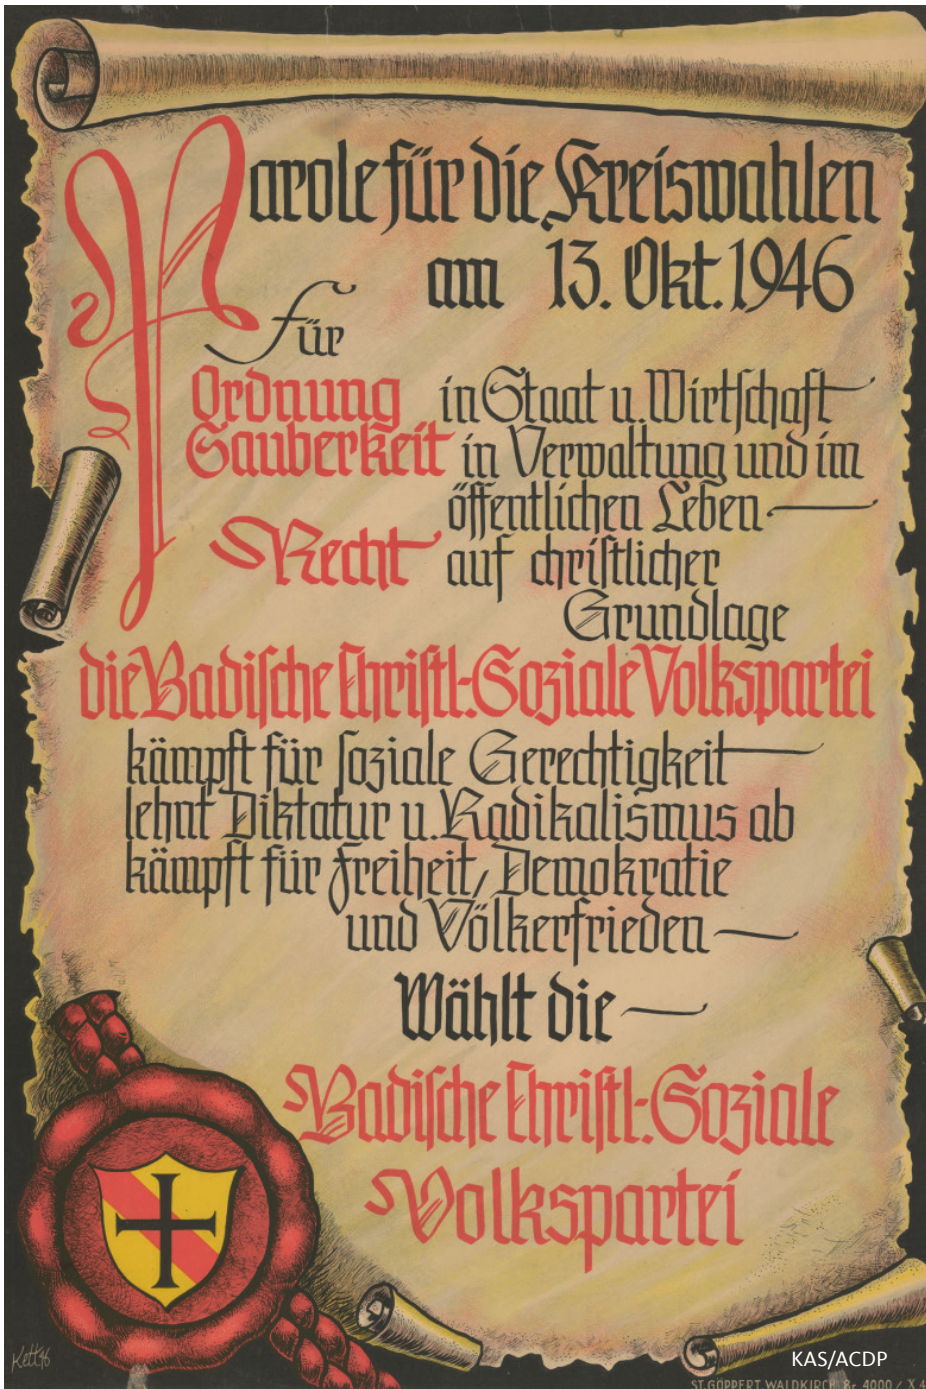 Parole für die Kreiswahlen
am 13. Okt. 1946
Für
Ordnung in Staat u. Wirtschaft
Sauberkeit in Verwaltung und im
öffentlichen Leben
Recht auf christlicher
Grundlage
die Badische Christl.-Soziale Volkspartei
kämpft für soziale Gerechtigkeit
lehnt Diktatur u. Radikalismus ab
kämpft für Freiheit, Demokratie
und Völkerfrieden
Wählt die
Badische Christl.-Soziale
Volkspartei
Kett 46
KAS/ACDP
ST. GÖPPERT WALDKIRCH Br. 4000 / X 4